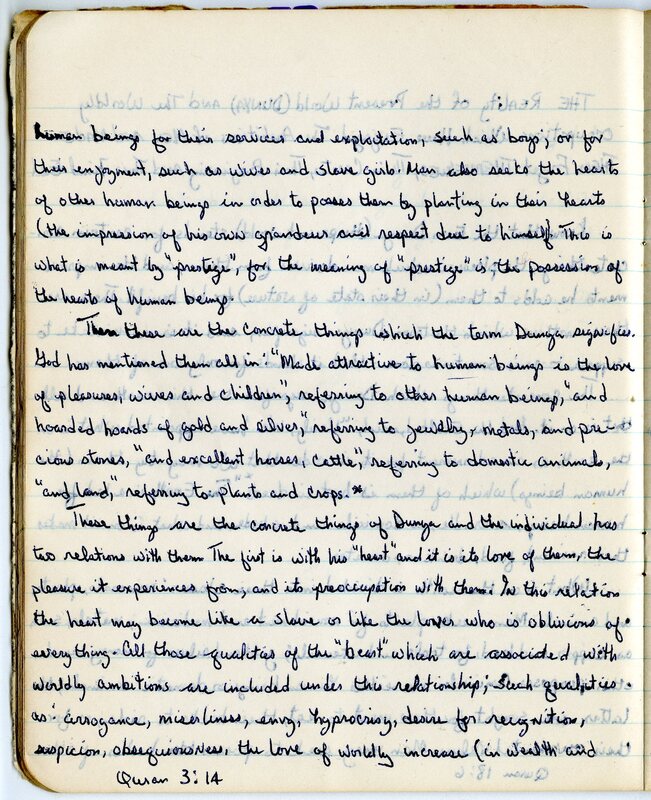 human beings for their services and exploitation, such as boys; or for
their enjoyment, such as wives and slave girls. Man also seeks the hearts
of other human beings in order to posses them by planting in their hearts
(the impression of his own grandeur and respect due to himself. This is
what is meant by "prestige", for the meaning of "prestige" is the possession of
the hearts of human beings.
Then these are the concrete things which the term Dunya signifies.
God has mentioned them all in: "Made attractive to human beings is the love
of pleasures, wives and children", referring to other human beings, "and
hoarded hoards of gold and silver," referring to jewelry, metals, and pre-
cious stones, "and excellent horses, cattle", referring to domestic animals,
"and land," referring to plants and crops.*
These things are the concrete things of Dunya and the individual has
two relations with them. The first is with his "heart" and it is its love of them, the
pleasure it experiences from, and its preoccupation with them. In this relation
the heart may become like a slave or like the lover who is oblivious of
everything. All those qualities of the "beast" which are associated with
worldly ambitions are included under this relationship; such qualities
as: arrogance, miserliness, envy, hyprocrisy, desire for recognition,
suspicion, obsequiousness, the love of worldly increase (in wealth and
Quran 3:14